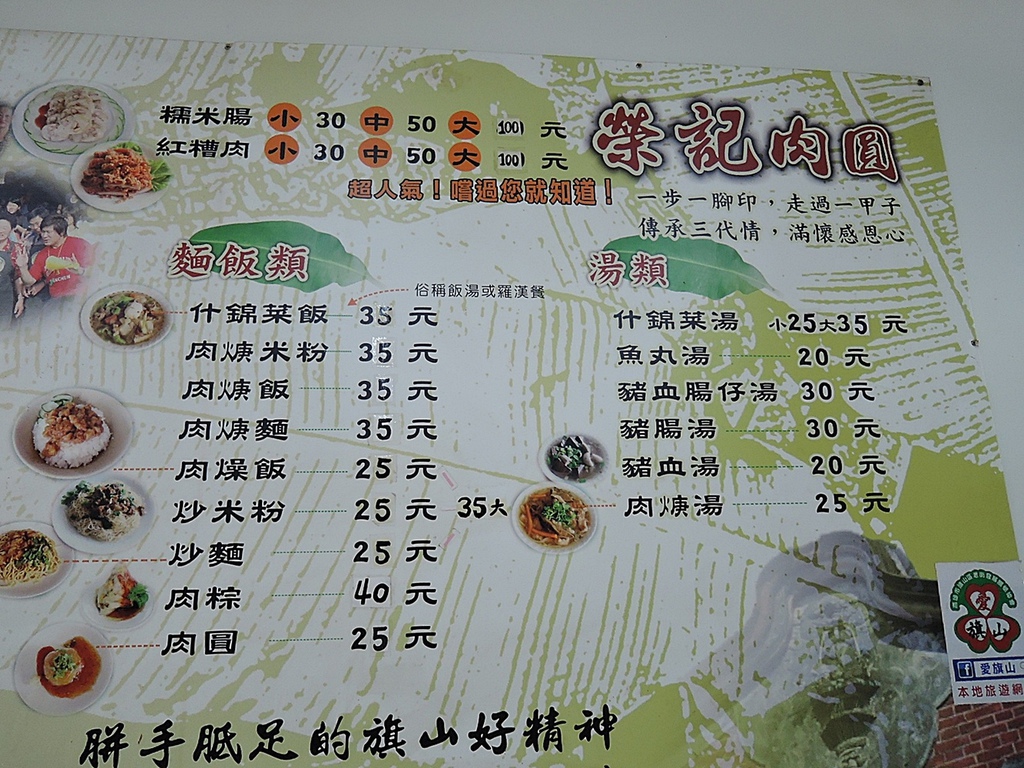 糯米腸 小 30 中 50 大 100 元
紅糟肉 小 30 中 50 大 100 元
超人氣！嚐過您就知道！
榮記肉圓
一步一腳印，走過一甲子
傳承三代情，滿懷感恩心
麵飯類
俗稱飯湯或羅漢餐
什錦菜飯 35 元
肉焿米粉 35 元
肉焿飯 35 元
肉焿麵 35 元
肉燥飯 25 元
炒米粉 25 元 35大
炒麵 25 元
肉粽 40 元
肉圓 25 元
湯類
什錦菜湯 小25大35 元
魚丸湯 20 元
豬血腸仔湯 30 元
豬腸湯 30 元
豬血湯 20 元
肉焿湯 25 元
胼手胝足的旗山好精神
愛
旗山
愛旗山
本地旅遊網